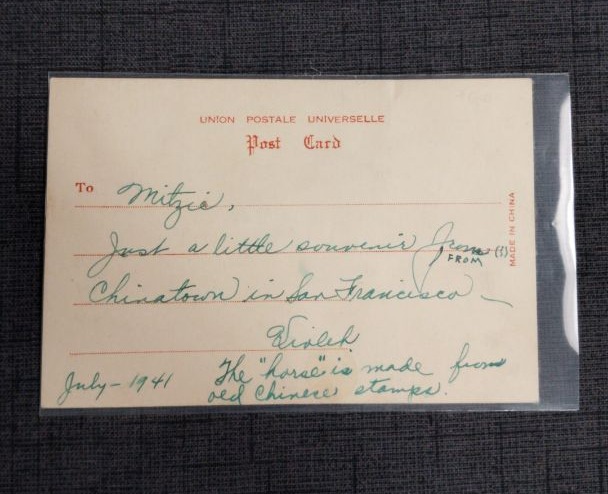 UNION POSTALE UNIVERSELLE
Post Card
To Mitzie,
Just a little souvenir from (!)
FROM
Chinatown in San Francisco —
July - 1941
The "horse" is made from
old Chinese stamps.
MADE IN CHINA